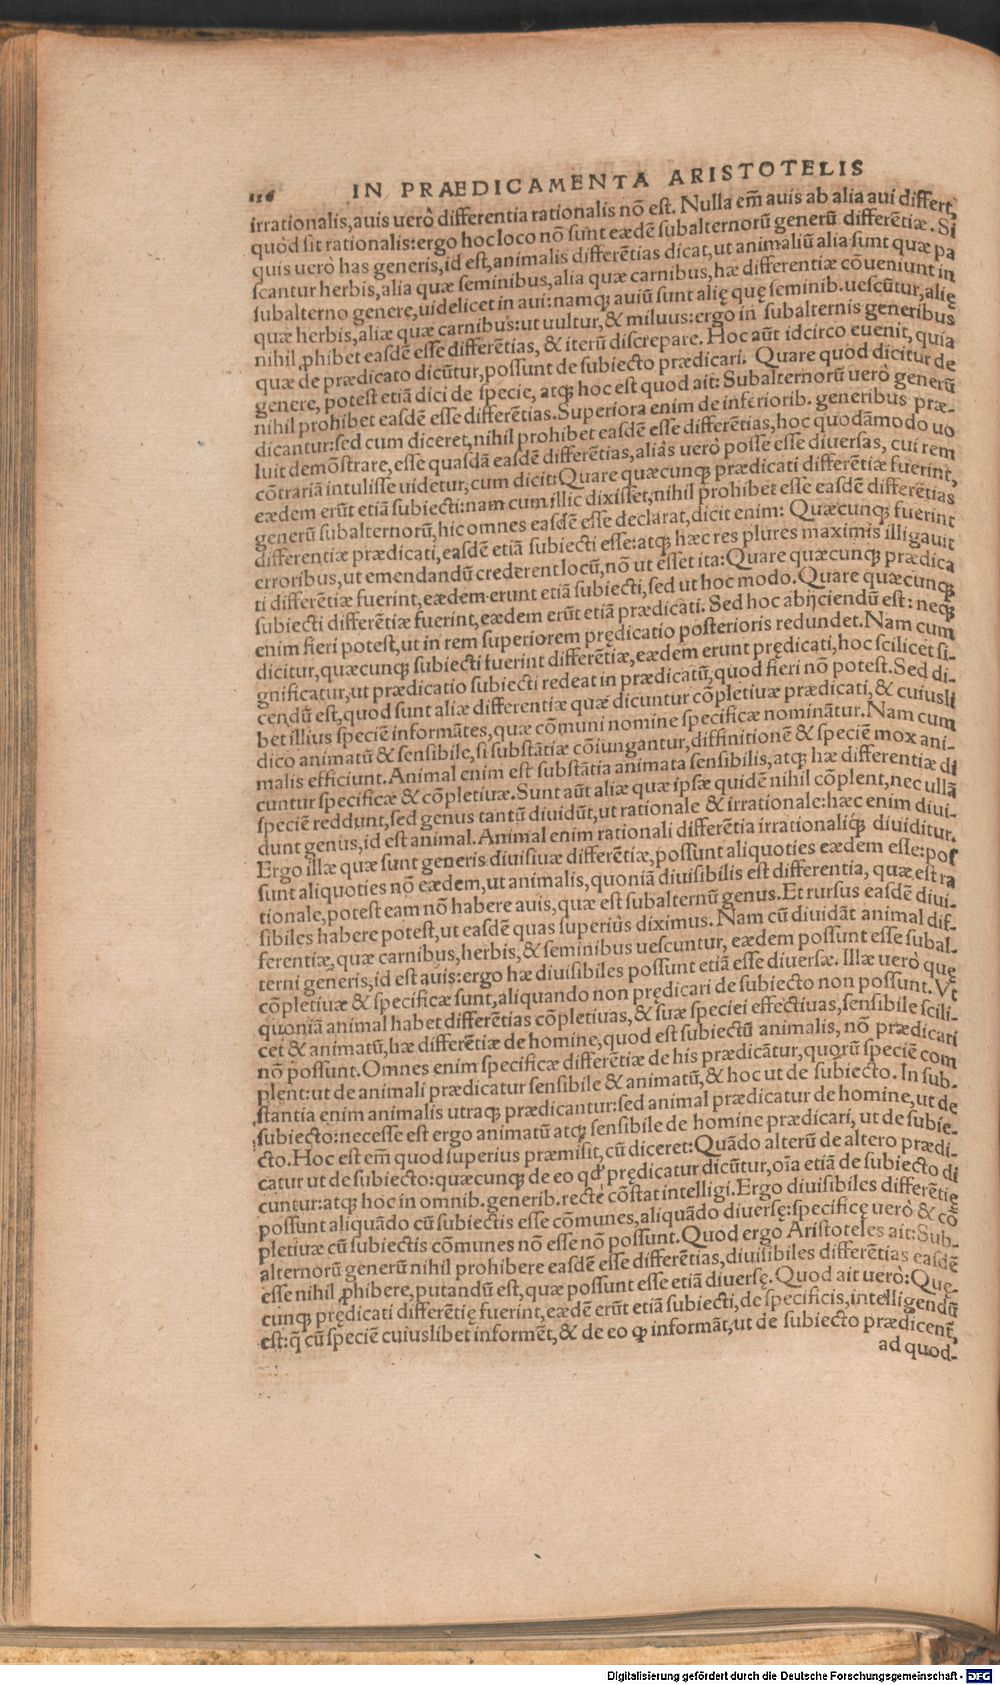 126 IN PRAEDICAMENTA ARISTOTELIS
irrationalis, auis uerò differentia rationalis nõ est. Nulla em̃ auis ab alia aui differt,
quòd sit rationalis: ergo hoc loco nõ sunt eædẽ subalternorũ generũ differẽtiæ. Si
quis uerò has generis, id est, animalis differẽtias dicat, ut animaliũ alia sunt quæ pa
scantur herbis, alia quæ seminibus, alia quæ carnibus, hæ differentiæ cõueniunt in
subalterno genere, uidelicet in aui: namq; auiũ sunt alię quę seminib. uescũtur, alię
quæ herbis, aliæ quæ carnibus: ut uultur, & miluus: ergo in subalternis generibus
nihil ꝓhibet easdẽ esse differẽtias, & iterũ discrepare. Hoc aũt idcirco euenit, quia
quæ de prædicato dicũtur, possunt de subiecto prædicari. Quare quod dicitur de
genere, potest etiã dici de specie, atq; hoc est quod ait: Subalternorũ uerò generũ
nihil prohibet easdẽ esse differẽtias. Superiora enim de inferiorib. generibus præ-
dicantur: sed cum diceret, nihil prohibet easdẽ esse differẽtias, hoc quodãmodo uo
luit demõstrare, esse quasdã easdẽ differẽtias, aliâs uerò posse esse diuersas, cui rem
cõtrariã intulisse uidetur, cum dicit: Quare quæcunq; prædicati differẽtiæ fuerint,
eædem erũt etiã subiecti: nam cum illic dixisset, nihil prohibet esse easdẽ differẽtias
generũ subalternorũ, hic omnes easdẽ esse declarat, dicit enim: Quæcunq; fuerint
differentiæ prædicati, easdẽ etiã subiecti esse: atq; hæc res plures maximis illigauit
erroribus, ut emendandũ crederent locũ, nõ ut esset ita: Quare quæcunq; prædica
ti differẽtiæ fuerint, eædem erunt etiã subiecti, sed ut hoc modo. Quare quæcunq;
subiecti differẽtiæ fuerint, eædem erũt etiã prædicati. Sed hoc abijciendũ est: neq;
enim fieri potest, ut in rem superiorem prędicatio posterioris redundet. Nam cum
dicitur, quæcunq; subiecti fuerint differẽtiæ, eædem erunt prędicati, hoc scilicet si-
gnificatur, ut prædicatio subiecti redeat in prædicatũ, quod fieri nõ potest. Sed di-
cendũ est, quod sunt aliæ differentiæ quæ dicuntur cõpletiuæ prædicati, & cuiusli
bet illius speciẽ informãtes, quæ cõmuni nomine specificæ nominãtur. Nam cum
dico animatũ & sensibile, si substãtiæ cõiungantur, diffinitionẽ & speciẽ mox ani-
malis efficiunt. Animal enim est substãtia animata sensibilis, atq; hæ differentiæ di
cuntur specificæ & cõpletiuæ. Sunt aũt aliæ quæ ipsæ quidẽ nihil cõplent, nec ullã
speciẽ reddunt, sed genus tantũ diuidũt, ut rationale & irrationale: hæc enim diui-
dunt genus, id est animal. Animal enim rationali differẽtia irrationaliq; diuiditur.
Ergo illæ quæ sunt generis diuisiuæ differẽtiæ, possunt aliquoties eædem esse: pos
sunt aliquoties nõ eædem, ut animalis, quoniã diuisibilis est differentia, quæ est ra
tionale, potest eam nõ habere auis, quæ est subalternũ genus. Et rursus easdẽ diui-
sibiles habere potest, ut easdẽ quas superiùs diximus. Nam cũ diuidãt animal dif-
ferentiæ, quæ carnibus, herbis, & seminibus uescuntur, eædem possunt esse subal-
terni generis, id est auis: ergo hæ diuisibiles possunt etiã esse diuersæ. Illæ uerò quę
cõpletiuæ & specificæ sunt, aliquando non prędicari de subiecto non possunt. Vt
quoniã animal habet differẽtias cõpletiuas, & suæ speciei effectiuas, sensibile scili-
cet & animatũ, hæ differẽtiæ de homine, quod est subiectũ animalis, nõ prædicari
nõ possunt. Omnes enim specificæ differẽtiæ de his prædicãtur, quorũ speciẽ com
plent: ut de animali prædicatur sensibile & animatũ, & hoc ut de subiecto. In sub-
stantia enim animalis utraq; prædicantur: sed animal prædicatur de homine, ut de
subiecto: necesse est ergo animatũ atq; sensibile de homine prædicari, ut de subie-
cto. Hoc est em̃ quod superius præmisit, cũ diceret: Quãdo alterũ de altero prædi-
catur ut de subiecto: quæcunq; de eo qđ prędicatur dicũtur, oĩa etiã de subiecto di
cuntur: atq; hoc in omnib. generib. recte cõstat intelligi. Ergo diuisibiles differẽtię
possunt aliquãdo cũ subiectis esse cõmunes, aliquãdo diuersę: specificę uerò & cõ
pletiuæ cũ subiectis cõmunes nõ esse nõ possunt. Quod ergo Aristoteles ait: Sub-
alternorũ generũ nihil prohibere easdẽ esse differẽtias, diuisibiles differẽtias easdẽ
esse nihil ꝓhibere, putandũ est, quæ possunt esse etiã diuersę. Quod ait uerò: Quę-
cunq; prędicati differẽtię fuerint, eædẽ erũt etiã subiecti, de specificis, intelligendũ
est: q̃ cũ speciẽ cuiuslibet informẽt, & de eo ꝙ informãt, ut de subiecto prædicent̃,
ad quod-
Digitalisierung gefördert durch die Deutsche Forschungsgemeinschaft - DFG